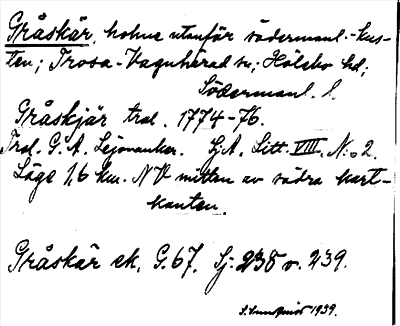 Gråskär, holme utanför södermanl.-kus-
ten; Trosa-Vagnhärad sn; Hölebo hd;
Södermanl. l.
Gråskjär tral. 1774-76.
Tral. G. A. Lejonanker. Lj.A. Litt. VIII. N:o 2.
Läge 1,6 km. NV mitten av södra kart-
kanten.
Gråskär ek. G.67. Sj: 238 o. 239.
1939.